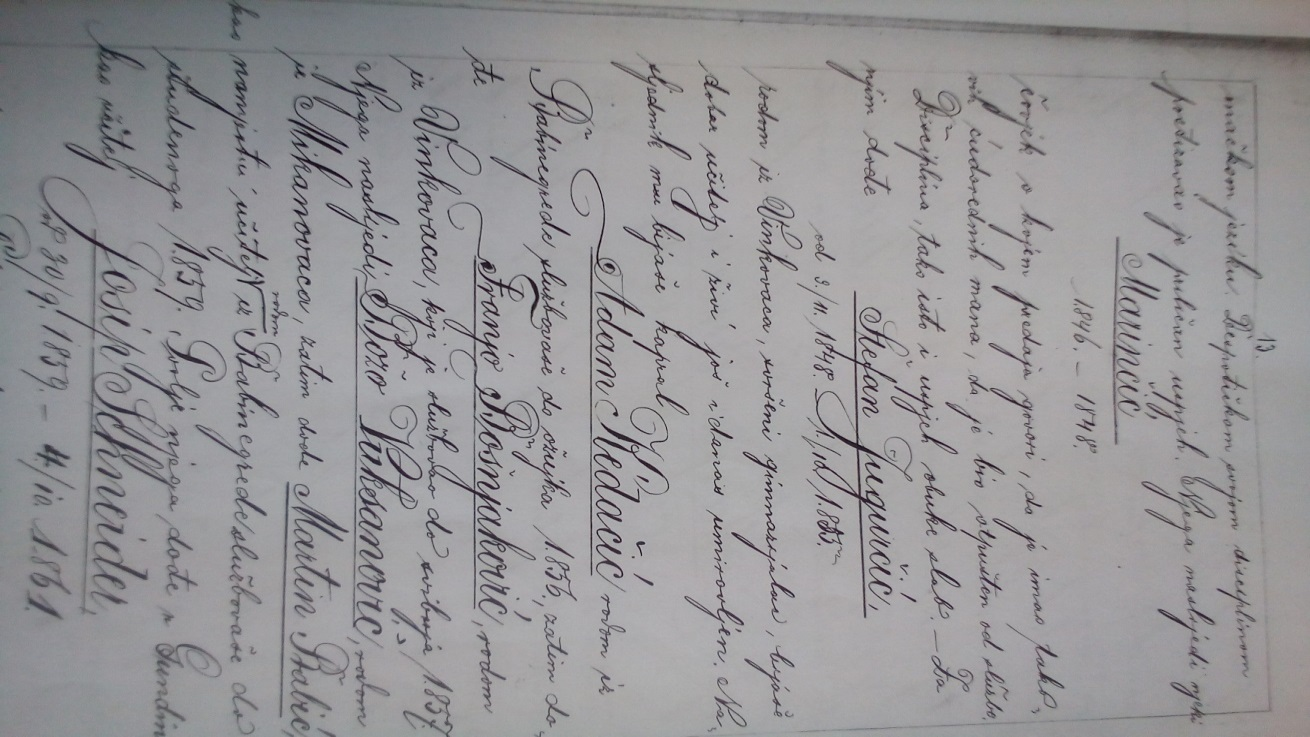 13
mačkom jeziku. Despotičkom svojom disciplinom
postizavao je priličan uspjeh. Njega naslijedi njeki
Marinčić
1846. – 1848.
čovjek o kojem predaja govori, da je imao tako,
vih ćudorednih mana, da je bio otpušten od službe.
Disciplina, tako isto i uspjeh obuke slab. – Za
njim dođe Stefan Jugović,
od 9/11. 1848.
rodom iz Vinkovaca, svršeni gimnazijalac, bijaše
dobar učitelj i živi još i danas umirovljen. Na,
sljednik mu bijaše kapral
Adam Nedačić, rodom iz
Babinegrede službovaše do ožujka 1856, zatim do,
đe Franjo Bošnjaković, rodom
iz Vinkovaca, koji je službovao do svibnja 1857.
Njega naslijedi Božo Vuksanović, rodom
iz Mikanovaca, zatim dođe Martin Babić,
kao nauputni učitelj rodom iz Babinegrede službovaše do
studenoga 1859. Poslje njega dođe u Gundin
kao učitelj
Josip Schneider,
od 30/9. 1859. – 4/10. 1861.